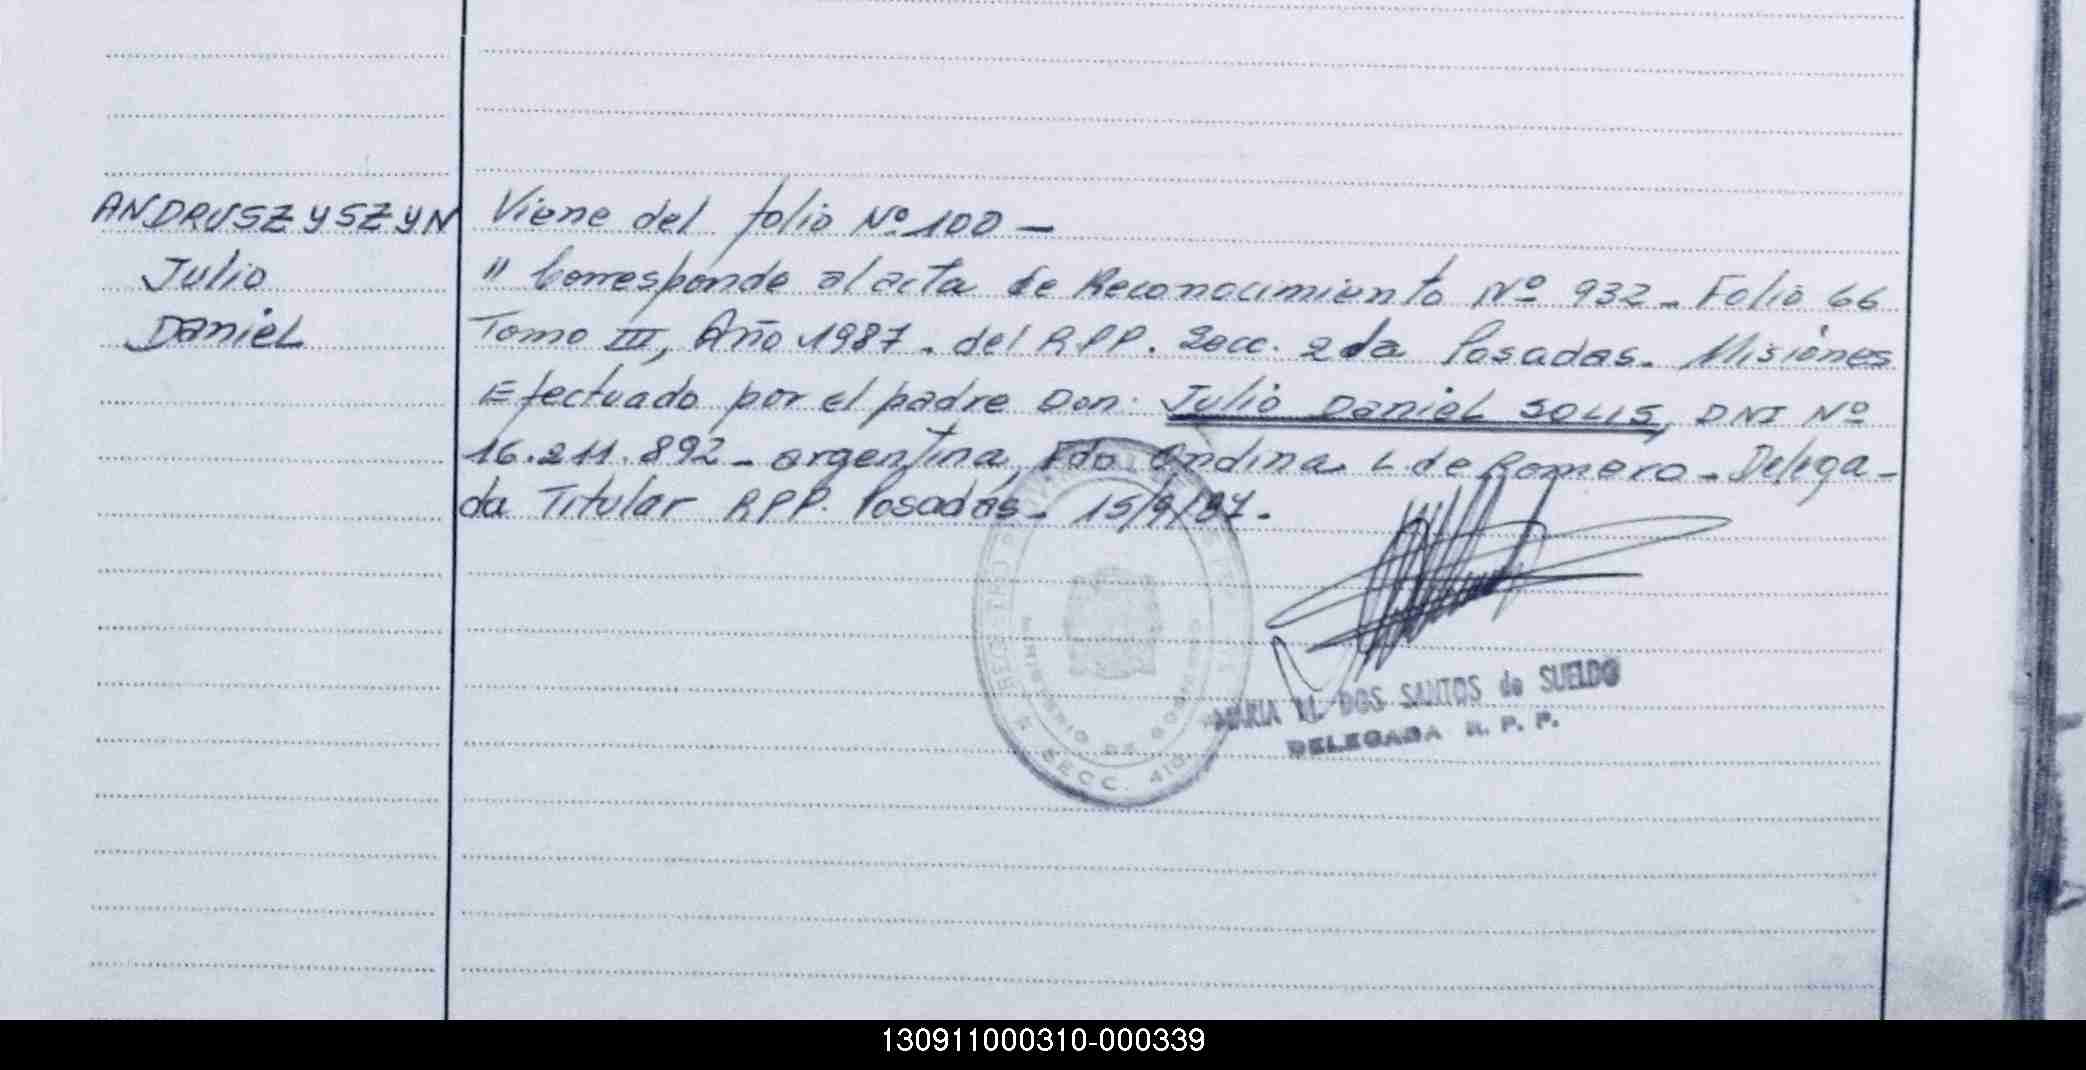 ANDRUSZYSZYN
Julio
Daniel
Viene del folio Nº 100 —
" Corresponde al acta de Reconocimiento Nº 932 - Folio 66
Tomo III, Año 1987. del RPP. Secc. 2da Posadas. Misiones
Efectuado por el padre Don. Julio Daniel SOLIS, DNI Nº
16.211.892 - argentina, Fdo Ondina L de Romero - Delega-
da Titular RPP. Posadas. 15/9/87.
MARIA M. DOS SANTOS de SUELDO
DELEGADA R. P. P.
REGISTRO
MINISTERIO DE GOBIERNO
SECC. 4ta
130911000310-000339